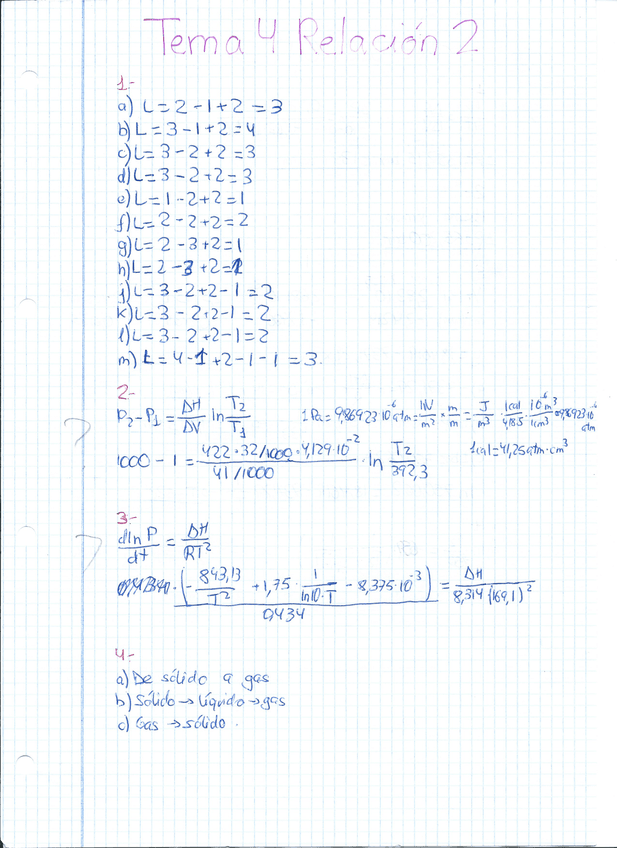 Tema 4 Relación 2
1-
a) L = 2 - 1 + 2 = 3
b) L = 3 - 1 + 2 = 4
c) L = 3 - 2 + 2 = 3
d) L = 3 - 2 + 2 = 3
e) L = 1 - 2 + 2 = 1
f) L = 2 - 2 + 2 = 2
g) L = 2 - 3 + 2 = 1
h) L = 2 - 3 + 2 = 1
j) L = 3 - 2 + 2 - 1 = 2
k) L = 3 - 2 + 2 - 1 = 2
l) L = 3 - 2 + 2 - 1 = 2
m) L = 4 - 1 + 2 - 1 - 1 = 3.
2-
P₂ - P₁ = ΔH/ΔV ln T₂/T₁ 1 Pa = 9,86923 10⁻⁶ atm = 1N/m² × m/m = J/m³ · 1cal/4,185 · 10⁻⁶m³/1cm³ 9,86923 10⁻⁶ atm
?
1000 - 1 = (422 · 32/1000 · 4,129·10⁻²)/(41/1000) · ln T₂/392,3 1cal = 41,25 atm·cm³
3-
? dln P/dt = ΔH/RT²
(- 843,13/T² + 1,75 · 1/(ln10·T) - 8,375·10⁻³)/0,434 = ΔH/(8,314 (169,1)²)
4-
a) De sólido a gas
b) Sólido → líquido → gas
c) Gas → sólido.